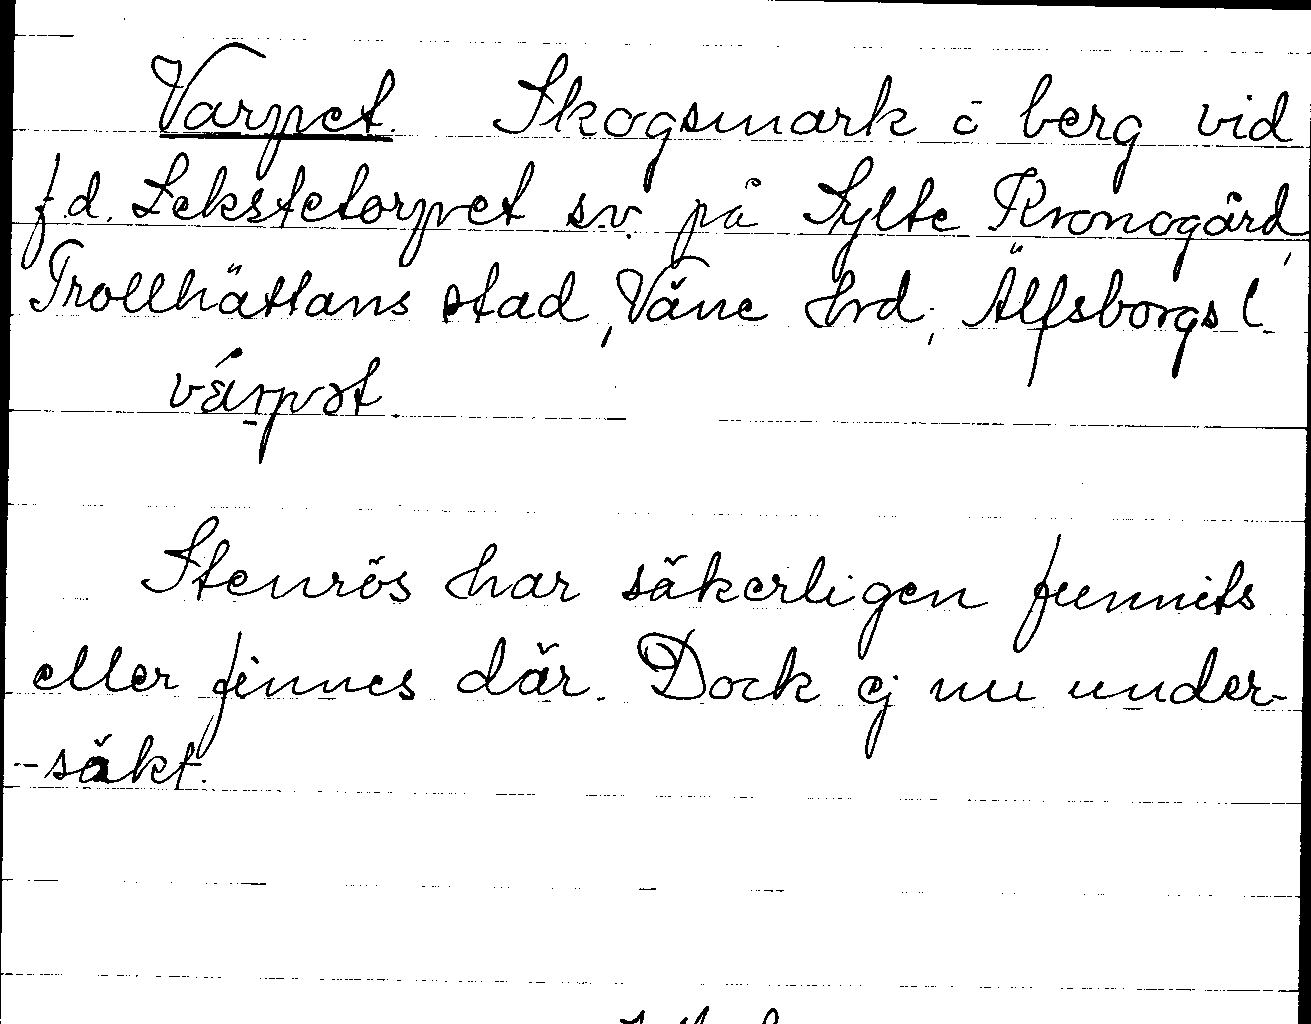 Varpet. Skogsmark i berg vid
f.d. Lekstetorpet s.v. på Sylte Kronogård,
Trollhättans stad, Väne Hrd, Älfsborgs l.
várpət.
Stenrös har säkerligen funnits
eller finnes där. Dock ej nu under-
-säkt.